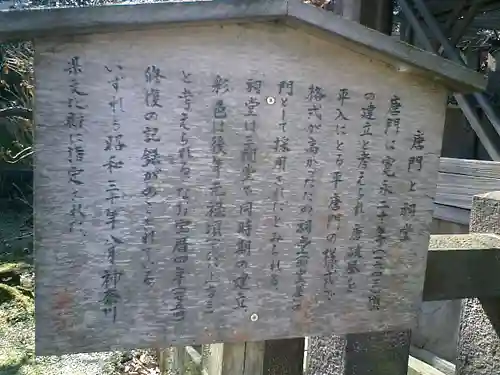 唐門と祠堂
唐門は寛永二十年(一六四三)頃
の建立と考えられ、唐破風を
平入にとる平唐門の様式で
格式が高かったため祠堂の
門として採用されたとみられる。
祠堂は三間堂で同時期の建立
彩色は後年元禄頃
と考えられる。なお宝暦四年(一七五四)
修復の記録がのこされている。
いずれも昭和三十年八月神奈川
県文化財に指定された。